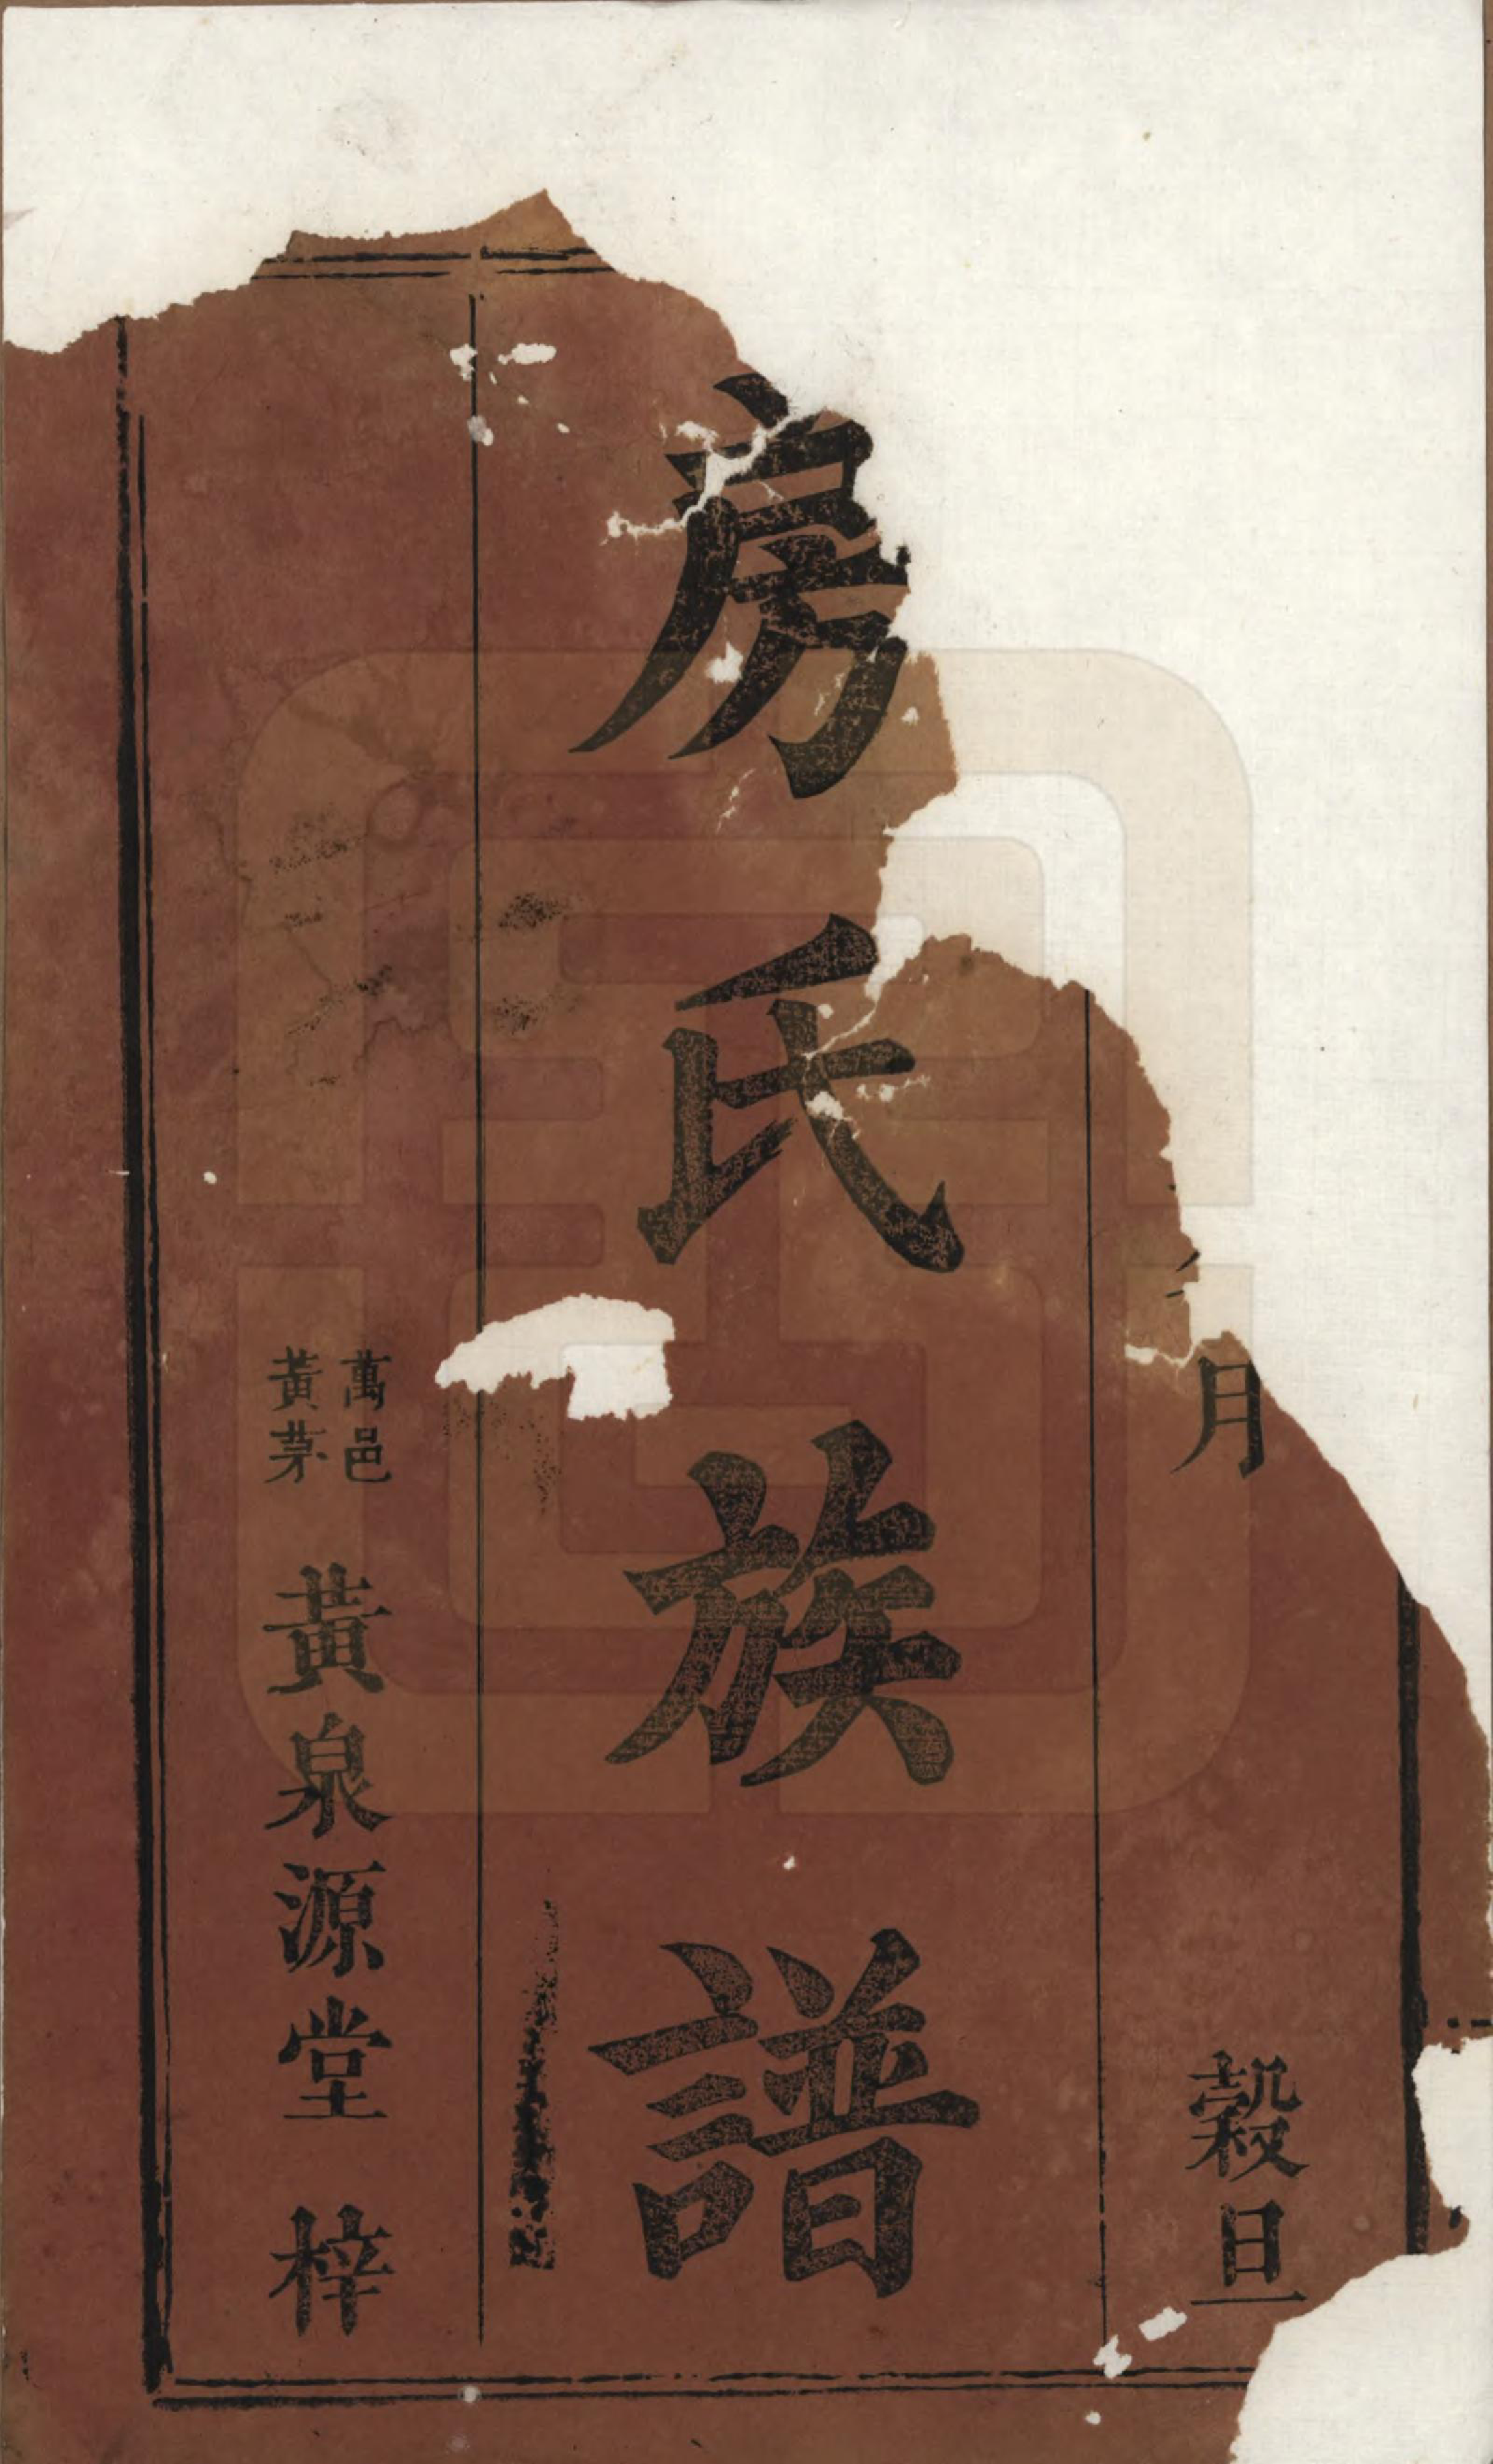 月 穀旦
房氏族譜
萬邑
黃茅
黃泉源堂 梓